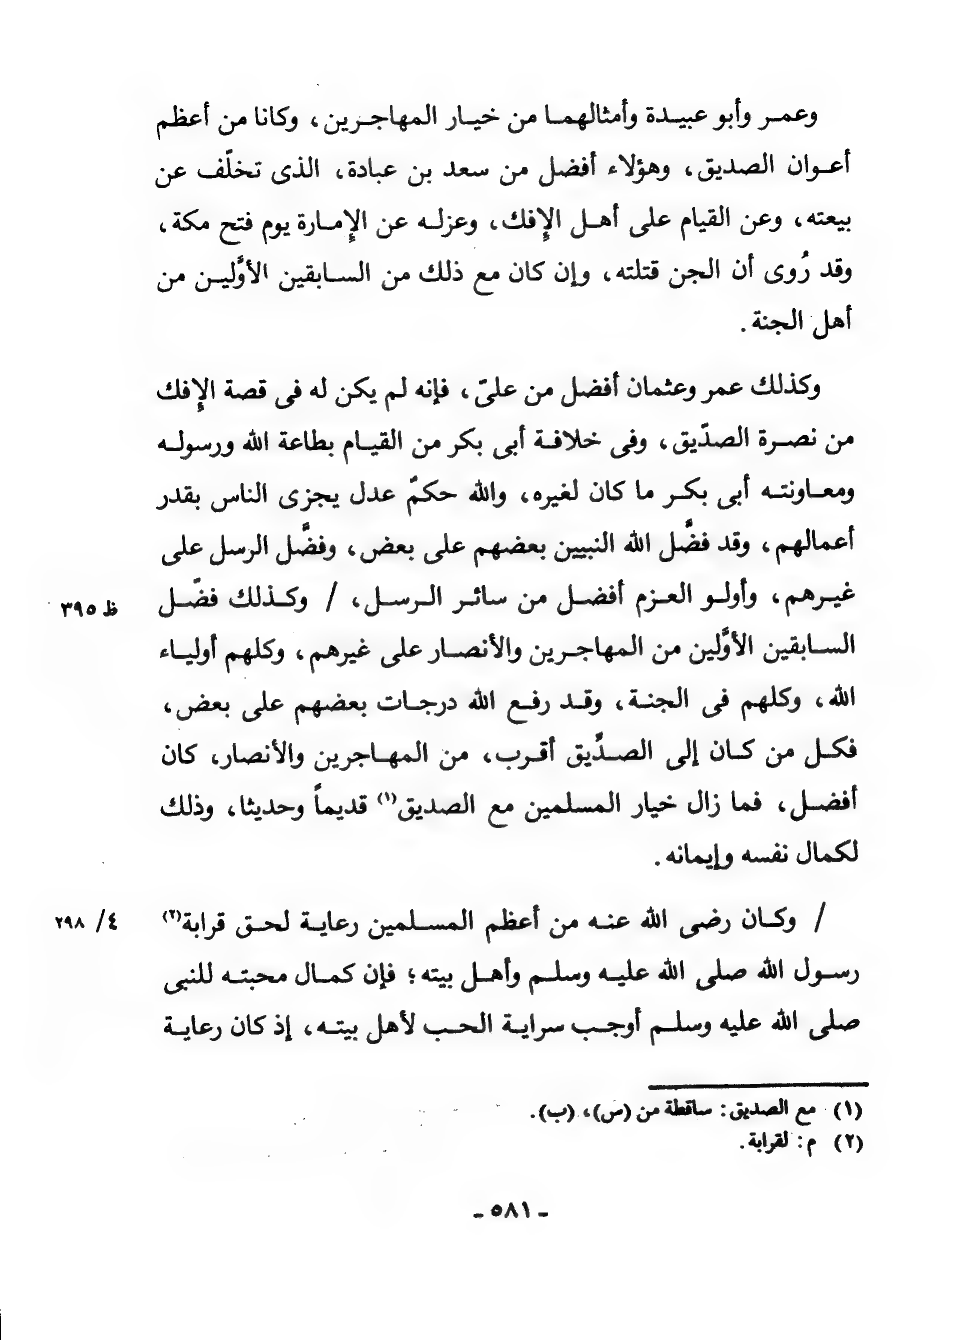 وعمـر وأبو عبيـدة وأمثالهمـا من خيـار المهاجـرين، وكانا من أعظم
أعـوان الصديق، وهؤلاء أفضل من سعد بن عبادة، الذى تخلّف عن
بيعته، وعن القيام على أهـل الإفك، وعزلـه عن الإمـارة يوم فتح مكة،
وقد رُوى أن الجن قتلته، وإن كان مع ذلك من السـابقين الأوَّليـن من
أهل الجنة.
وكذلك عمر وعثمان أفضل من علىّ، فإنه لم يكن له فى قصة الإفك
من نصـرة الصدّيق، وفى خلافـة أبى بكر من القيام بطاعة الله ورسولـه
ومعـاونتـه أبى بكـر ما كان لغيره، والله حكمٌ عدل يجزى الناس بقدر
أعمالهم، وقد فضَّل الله النبيين بعضهم على بعض، وفضَّل الرسل على
غيـرهم، وأولـو العـزم أفضـل من سائـر الـرسـل، / وكـذلك فضّـل
ظ ٣٩٥
السـابقين الأوَّلين من المهاجـرين والأنصـار على غيرهم، وكلهم أوليـاء
الله، وكلهم فى الجنـة، وقـد رفـع الله درجـات بعضهم على بعض،
فكـل من كـان إلى الصـدِّيق أقـرب، من المهـاجرين والأنصار، كان
أفضـل، فما زال خيار المسلمين مع الصديق(١) قديماً وحديثا، وذلك
لكمال نفسه وإيمانه.
/ وكـان رضى الله عنـه من أعظم المسـلمين رعايـة لحـق قرابة(٢)
٤/ ٢٩٨
رسـول الله صلى الله عليـه وسلـم وأهـل بيته؛ فإن كمـال محبتـه للنبى
صلى الله عليه وسلـم أوجـب سرايـة الحـب لأهل بيتـه، إذ كان رعايـة
(١) مع الصديق: ساقطة من (س)، (ب).
(٢) م: لقرابة.
- ٥٨١ -